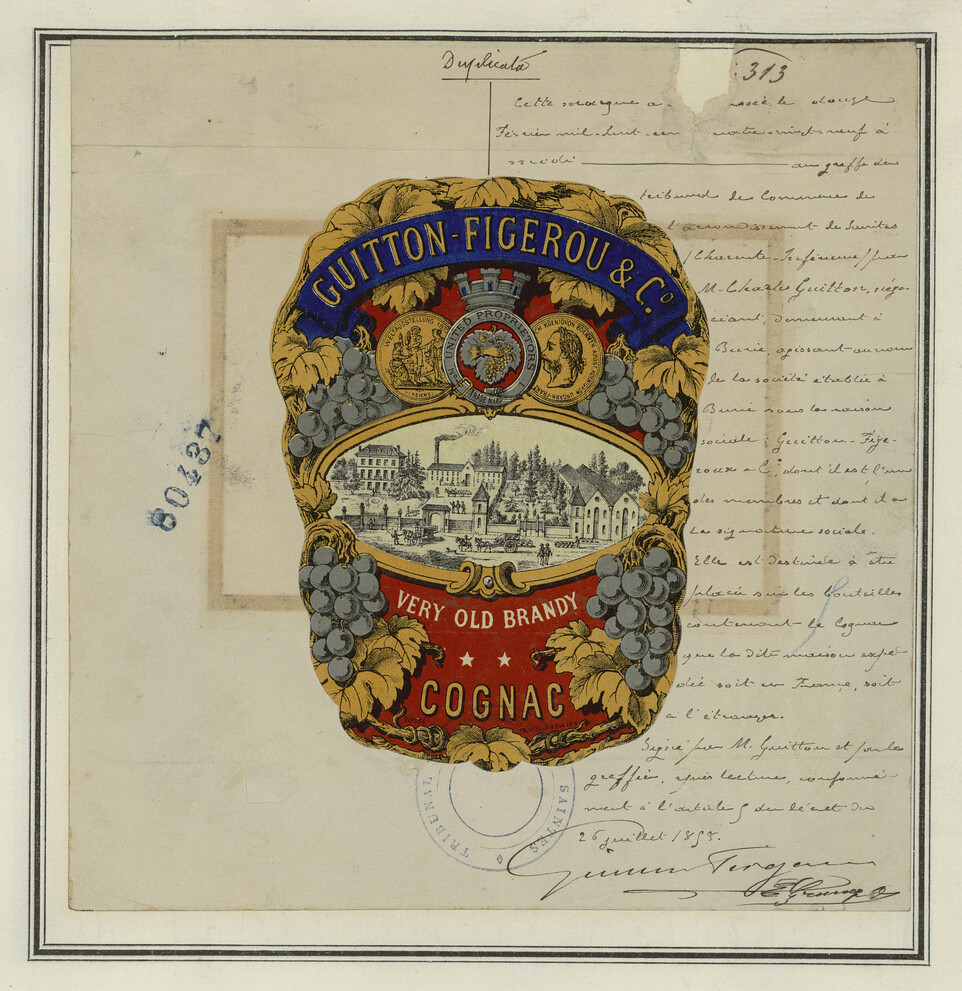 Duplicata
313
Cette marque a
le douze
Février mil-huit-cen
vingt-neuf à
midi
au greffe du
tribunal de Commerce de
l'arrondissement de Saintes
(Charente-Inférieure) par
M. Charles Guitton, négo-
ciant, demeurant à
Burie, agissant au nom
de la société établie à
Burie sous la raison
sociale: Guitton-Fige-
roux & Cie, dont il est l'un
des membres et dont il a
la signature sociale.
Elle est destinée à être
placée sur les bouteilles
contenant le Cognac
que la dite maison expé-
die soit en France, soit
à l'étranger.
Signé par M. Guitton et par le
greffier, après lecture, conformé-
ment à l'article 5 du décret du
26 juillet 1858.
GUITTON-FIGEROU & Co
UNITED PROPRIETORS
TRADE MARK
WELTAUSSTELLUNG
VERY OLD BRANDY
COGNAC
80437
TRIBUNAL
SAINTES